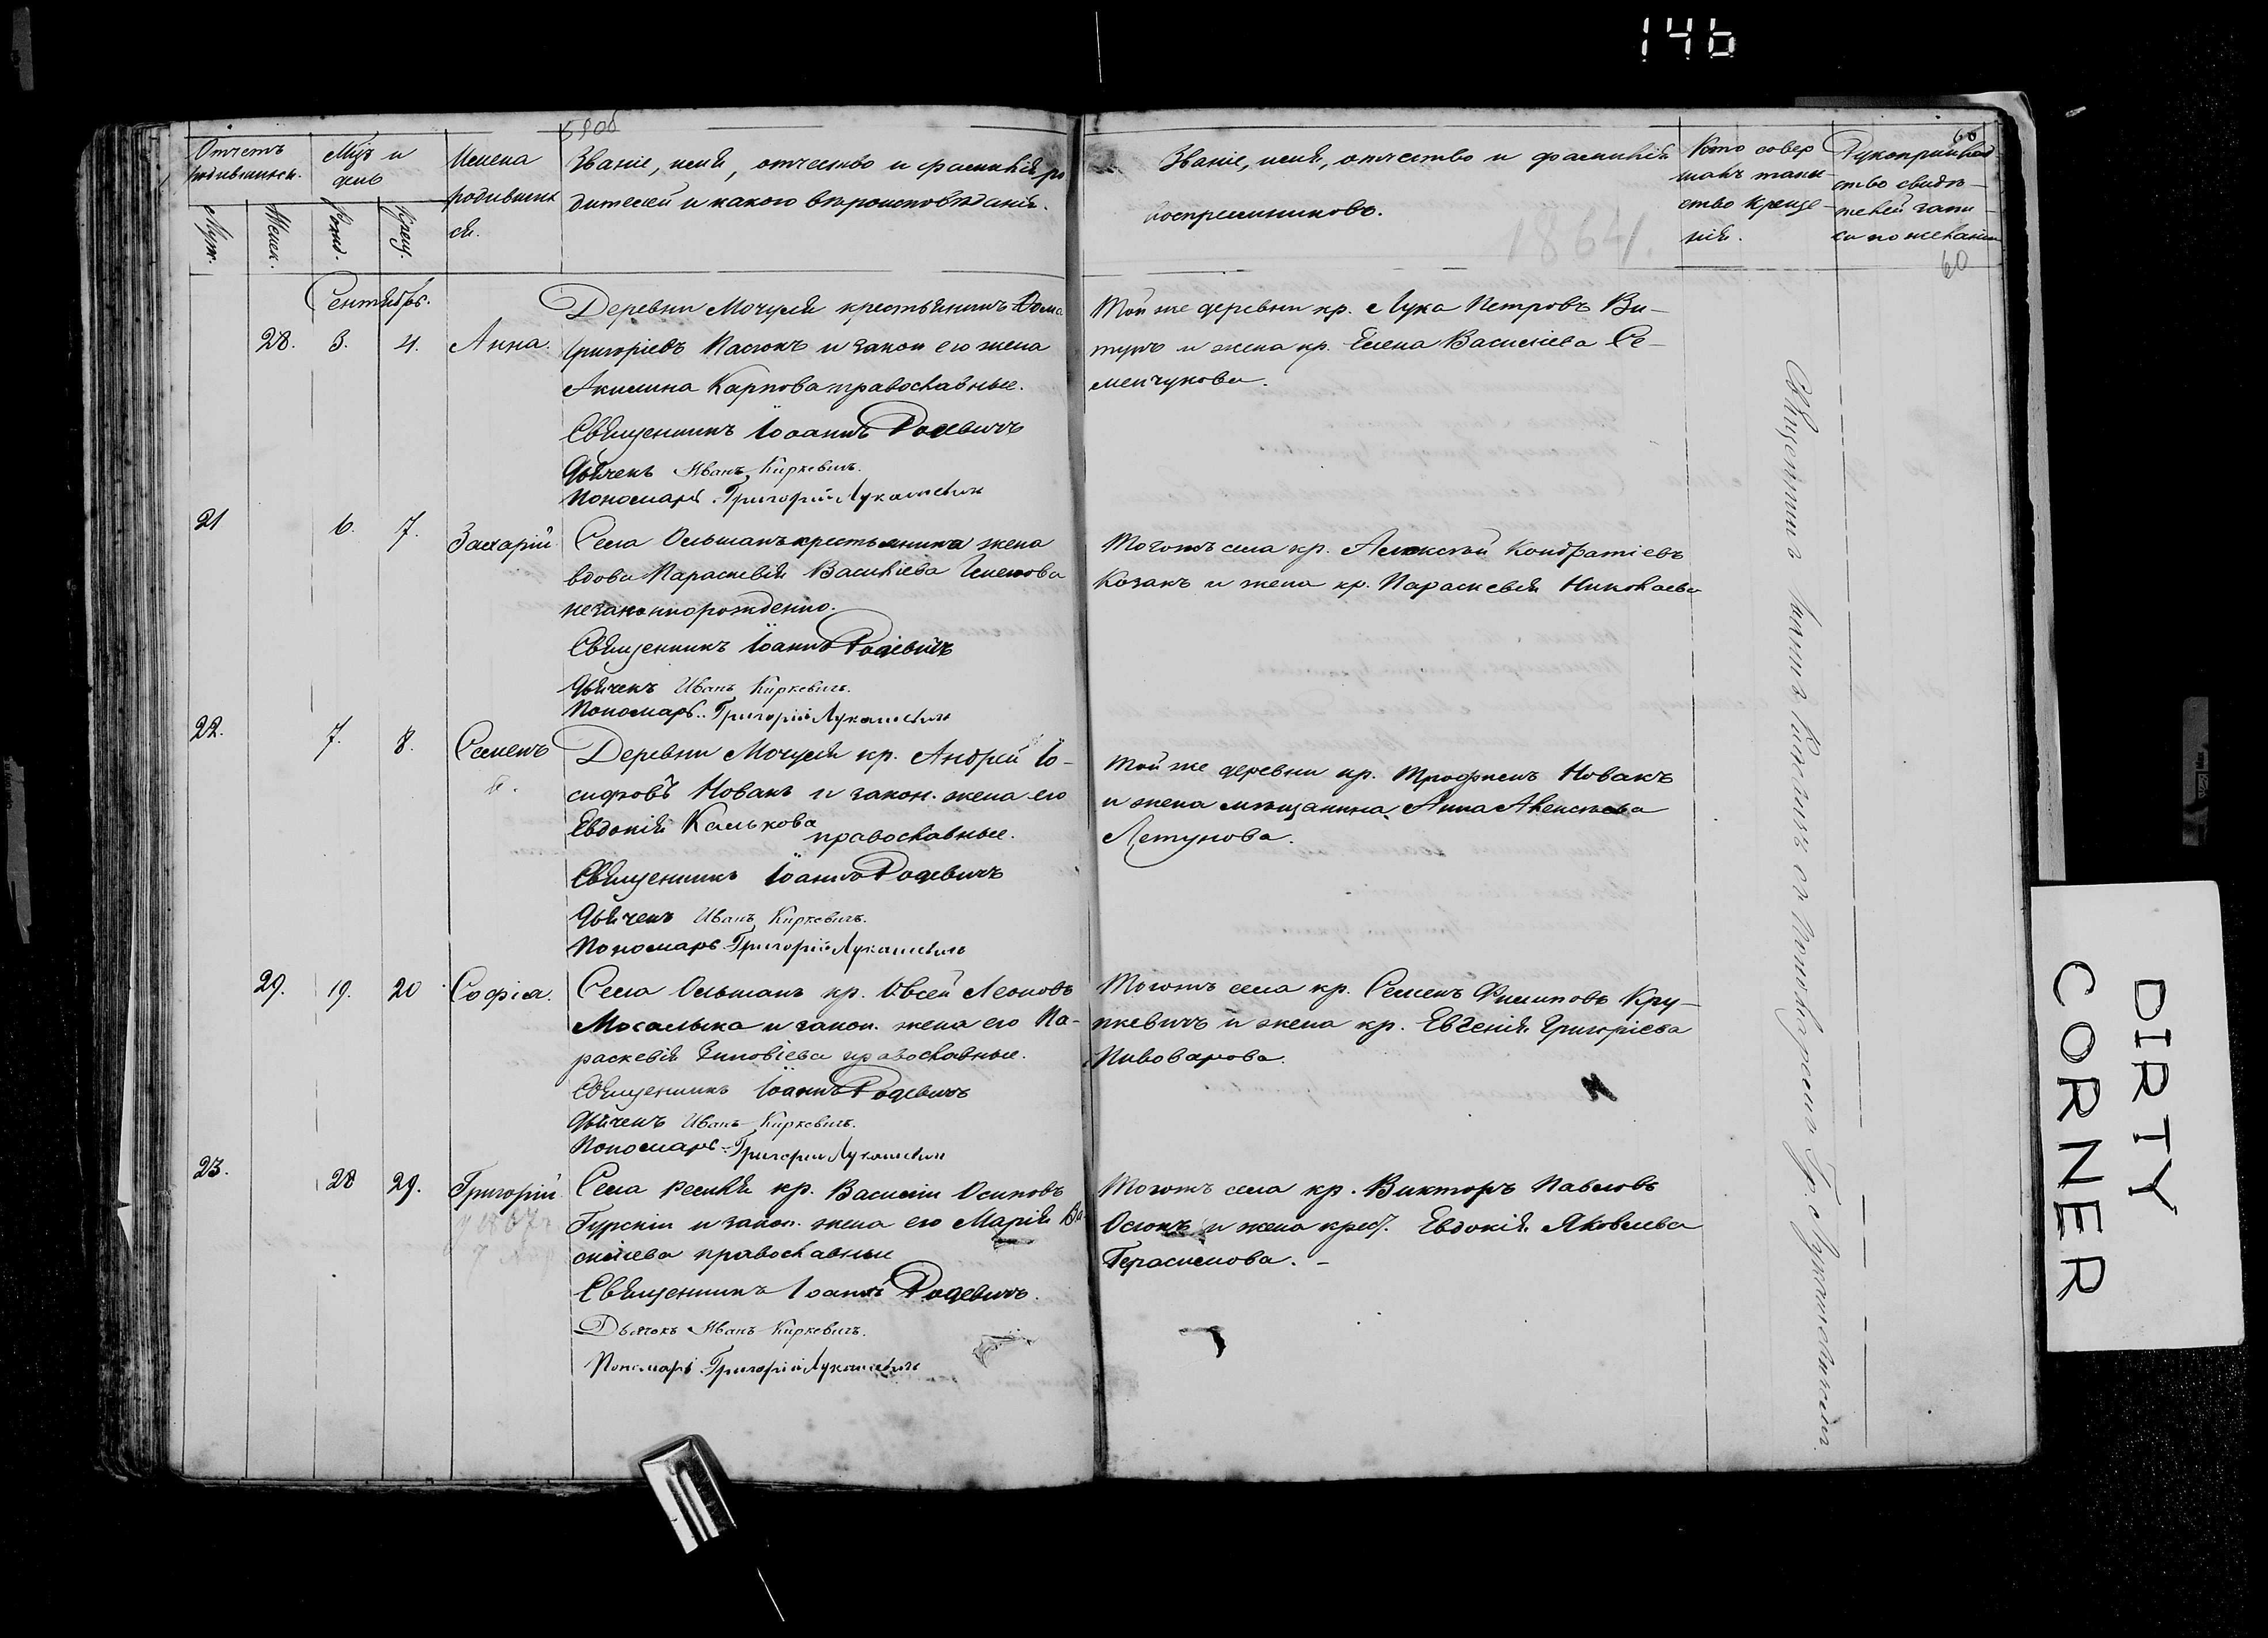 146
59об
60
Отчетъ родившихся.
Мцъ и день
Муж.
Женск.
Рожд.
Крещ.
Имена родившихся.
Званіе, имя, отчество и фамилія родителей и какого вѣроисповѣданія.
Званіе, имя, отчество и фамилія воспреемниковъ.
Кто совершалъ таинство крещенія.
Рукоприкладство свидѣтелей записи по желанію
1864.
60
Сентябрь.
28. 3. 4. Анна.
Деревни Мочуля крестьянинъ Фома
Григоріевъ Пасюкъ и закон его жена
Акилина Карпова православные.
Священникъ Іоаннъ Родевичъ
Дьячекъ Иванъ Киркевичъ.
Пономарь Григорій Лукашевичъ
Той же деревни кр. Лука Петровъ Ви-
туръ и жена кр. Елена Василіева Се-
менчукова.
21 6. 7. Захарій
Села Ольшанъ крестьянина жена
вдова Параскевія Василіева
незаконнорожденно.
Священникъ Іоаннъ Родевичъ
Дьячекъ Иванъ Киркевичъ.
Пономарь Григорій Лукашевичъ
Тогожъ села кр. Алексѣй Кондратіевъ
Козакъ и жена кр. Параскевія Николаева
22. 7. 8. Семенъ
Деревни Мочуля кр. Андрей Іо-
сифовъ Новакъ и закон. жена его
Евдокія Калькова
православные.
Священникъ Іоаннъ Родевичъ
Дьячекъ Иванъ Киркевичъ.
Пономарь Григорій Лукашевичъ
Той же деревни кр. Трофимъ Новакъ
и жена мѣщанина Анна Алексѣева
Летунова.
29. 19. 20 Софія.
Села Ольшанъ кр. Овсей Леоновъ
Мосалыка и закон. жена его Па-
раскевія Зиновіева православные.
Священникъ Іоаннъ Родевичъ
Дьячекъ Иванъ Киркевичъ.
Пономарь Григорій Лукашевичъ
Тогожъ села кр. Семенъ Филиповъ Кру-
пкевичъ и жена кр. Евгенія Григоріева
Пивоварова.
23. 28 29. Григорій
Села Ремля кр. Василій Осиповъ
Гурскій и закон. жена его Марія Ва-
силіева православные
Священникъ Іоаннъ Родевичъ.
Дьячокъ Иванъ Киркевичъ.
Пономарь Григорій Лукашевичъ
Тогожъ села кр. Викторъ Павловъ
Осюкъ и жена крест. Евдокія Яковлева
Герасимова.
DIRTY
CORNER